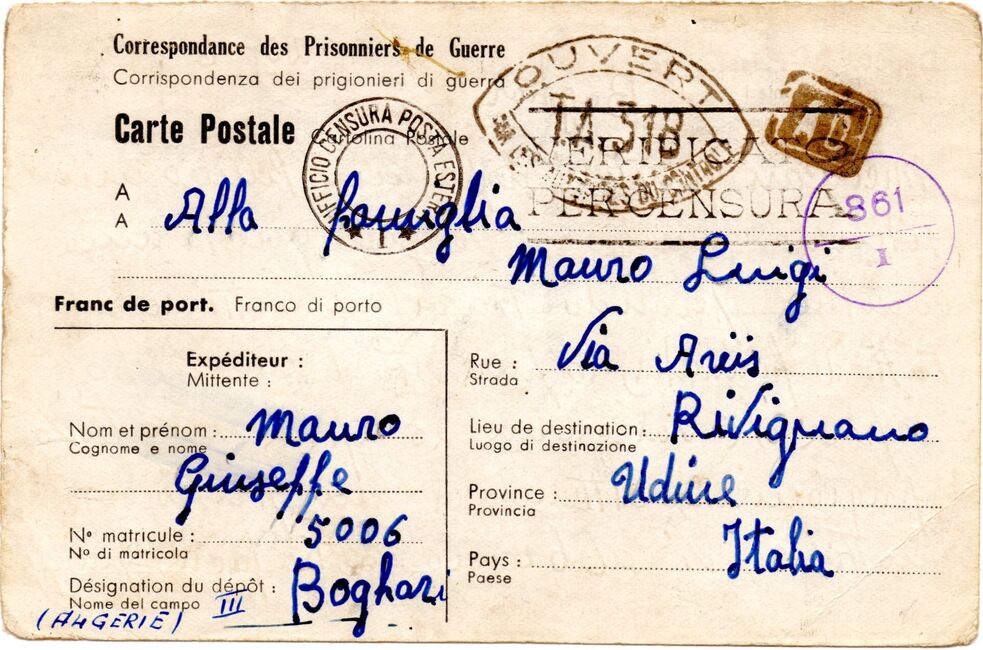 Correspondance des Prisonniers de Guerre
Corrispondenza dei prigionieri di guerra
Carte Postale Cartolina Postale
UFFICIO CENSURA POSTA ESTERA
1
OUVERT
TA 318
PAR LES AUTORITÉS DE CONTROLE
VERIFICATO
PER CENSURA
861
I
A
A
Alla famiglia
Mauro Luigi
Franc de port. Franco di porto
Expéditeur :
Mittente :
Nom et prénom : Mauro
Cognome e nome
Giuseppe
Nº matricule : 5006
Nº di matricola
Désignation du dépôt : Boghari
Nome del campo III
(ALGERIE)
Rue : Via Ariis
Strada
Lieu de destination : Rivignano
Luogo di destinazione
Province : Udine
Provincia
Pays : Italia
Paese